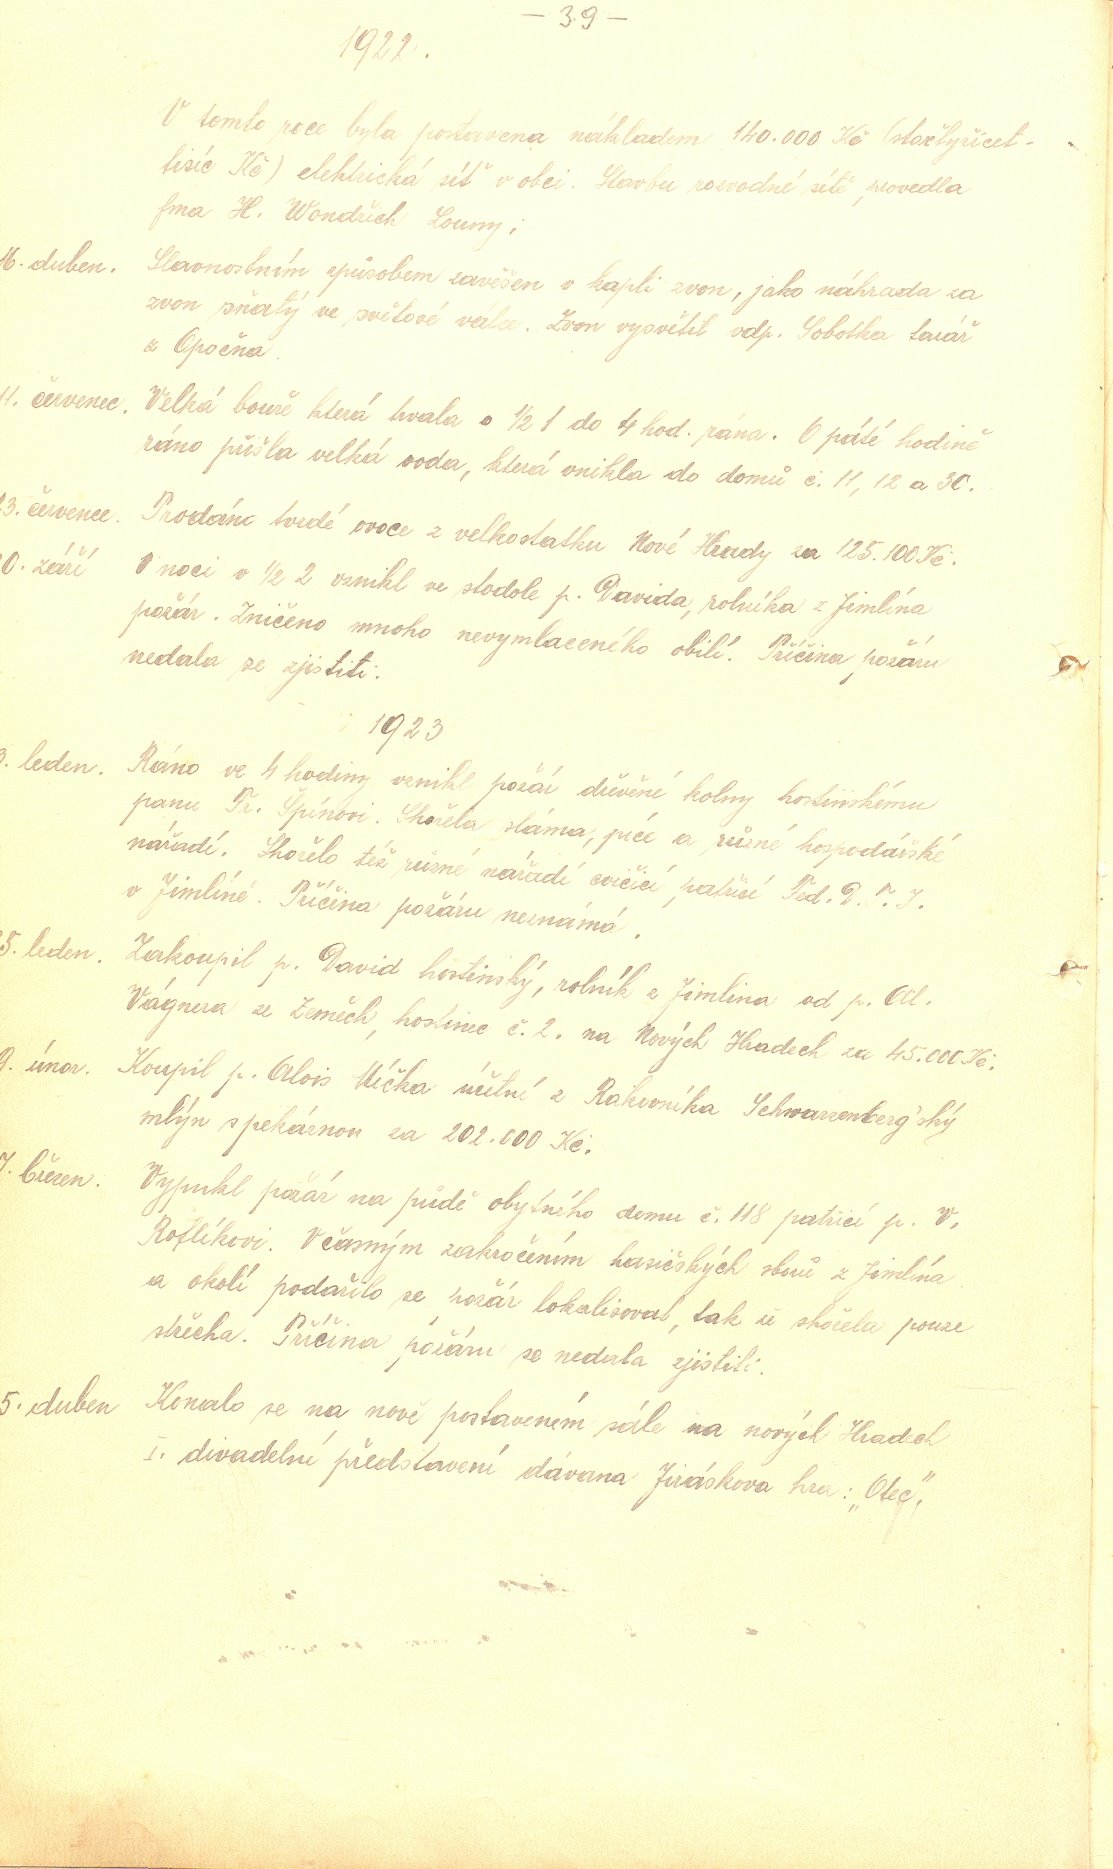 – 39 –
1922.
V tomto roce byla postavena nákladem 140.000 Kč (stočtyřicet-
tisíc Kč) elektrická síť v obci. Stavbu rozvodné sítě, provedla
fma H. Wondřich Louny;
16. duben. Slavnostním způsobem zavěšen v kapli zvon, jako náhrada za
zvon sňatý ve světové válce. Zvon vysvětil vdp. Sobotka farář
z Opočna.
11. červenec. Velká bouře která trvala o ½ 1 do 4 hod. rána. O páté hodině
ráno přišla velká voda, která vnikla do domů č. 11, 12 a 30.
23. červenec. Prodáno tvrdé ovoce z velkostatku Nové Hrady za 125.100 Kč.
0. září V noci o ½ 2 vznikl ve stodole p. Davida, rolníka z Jimlína
požár. Zničeno mnoho nevymlaceného obilí. Příčina požáru
nedala se zjistiti.
1923
. leden. Ráno ve 4 hodiny vznikl požár dřevěné kolny hostinskému
panu Fr. Špínovi. Shořela sláma, píce a různé hospodářské
nářadí. Shořelo též různé nářadí cvičící patřící Fed. D. T. J.
v Jimlíně. Příčina požáru neznámá.
5. leden. Zakoupil p. David hostinský, rolník z Jimlína od p. Al.
Vágnera ze Zeměch, hostinec č. 2. na Nových Hradech za 45.000 Kč.
9. únor. Koupil p. Alois Mička účetní z Rakovníka Schwarzenberg'ský
mlýn s pekárnou za 202.000 Kč.
7. březen. Vypukl požár na půdě obytného domu č. 118 patřící p. V.
Rőflíkovi. Včasným zakročením hasičských sborů z Jimlína
a okolí podařilo se požár lokalisovat, tak že shořela pouze
střecha. Příčina požáru se nedala zjistiti.
5. duben Konalo se na nově postaveném sále na nových Hradech
I. divadelní představení dávana Jiráskova hra: „Otec".